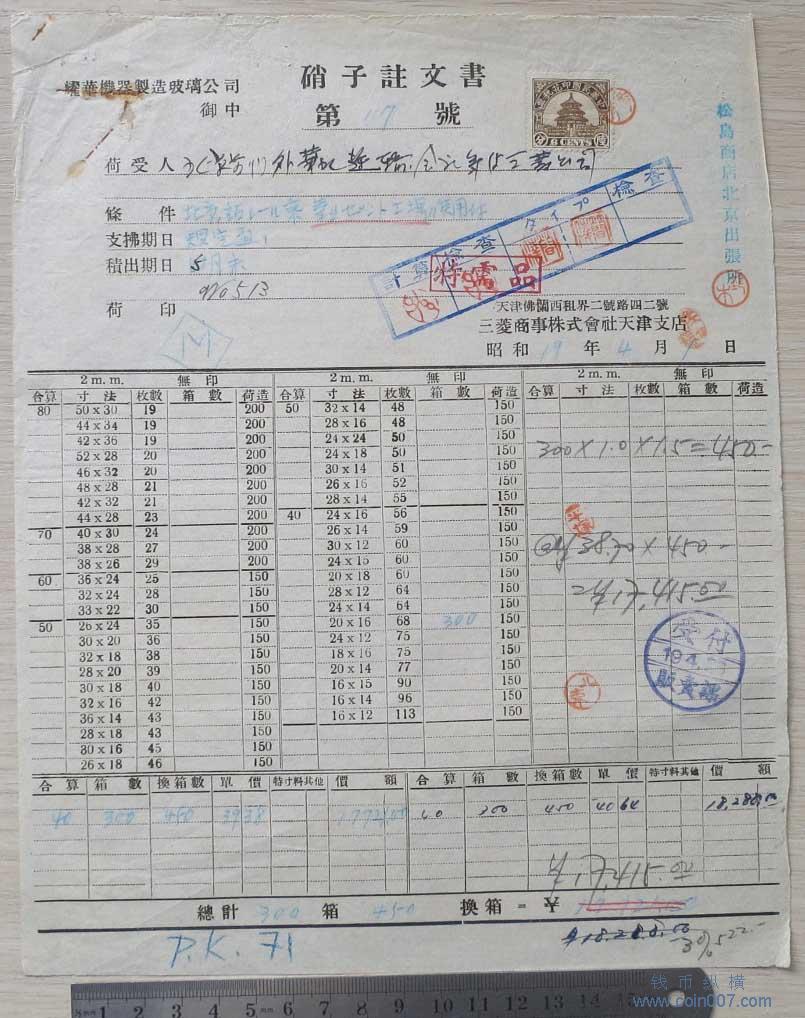 硝子註文書
耀華機器製造玻璃公司
御中
第 117 號
6 CENTS
松島商店北京出張所
荷受人
條件
支拂期日
積出期日 5月末
No 513
荷印 M
計算 檢查 タイプ 檢查
特需品
天津佛蘭西租界二號路四二號
三菱商事株式會社天津支店
昭和 19 年 4 月 日
2 m. m. 無印 2 m. m. 無印 2 m. m. 無印
合算 寸法 枚數 箱數 荷造 合算 寸法 枚數 箱數 荷造 合算 寸法 枚數 箱數 荷造
80 50 x 30 19 200 50 32 x 14 48 150
44 x 34 19 200 28 x 16 48 150
42 x 36 19 200 24 x 24 50 150
52 x 28 20 200 24 x 18 50 150
46 x 32 20 200 30 x 14 51 150
48 x 28 21 200 26 x 16 52 150
42 x 32 21 200 28 x 14 55 150
44 x 28 23 200 40 24 x 16 56 150
70 40 x 30 24 200 26 x 14 59 150
38 x 28 27 200 30 x 12 60 150
38 x 26 29 200 24 x 15 60 150
60 36 x 24 25 150 20 x 18 60 150
32 x 24 28 150 28 x 12 64 150
33 x 22 30 150 24 x 14 64 150
50 26 x 24 35 150 20 x 16 68 300 150
30 x 20 36 150 24 x 12 75 150
32 x 18 38 150 18 x 16 75 150
28 x 20 39 150 20 x 14 77 150
30 x 18 40 150 16 x 15 90 150
32 x 16 42 150 16 x 14 96 150
36 x 14 43 150 16 x 12 113 150
28 x 18 43 150
30 x 16 45 150
26 x 18 46 150
300 X 1.0 X 1.5 = 450-
38.70 X 450-
17,415.00
受付
19.4
販賣課
合算 箱數 換箱數 單價 特寸料其他 價額 合算 箱數 換箱數 單價 特寸料其他 價額
40 300 450 39 38 40 300 450 40 64 18,288.00
17,415.00
總計 300 箱 450 換箱 = ¥
18,288.00
P.K. 71
1 2 3 4 5 6 7 8 9 10 11 12 13 14 15
钱币纵横
www.coin007.com